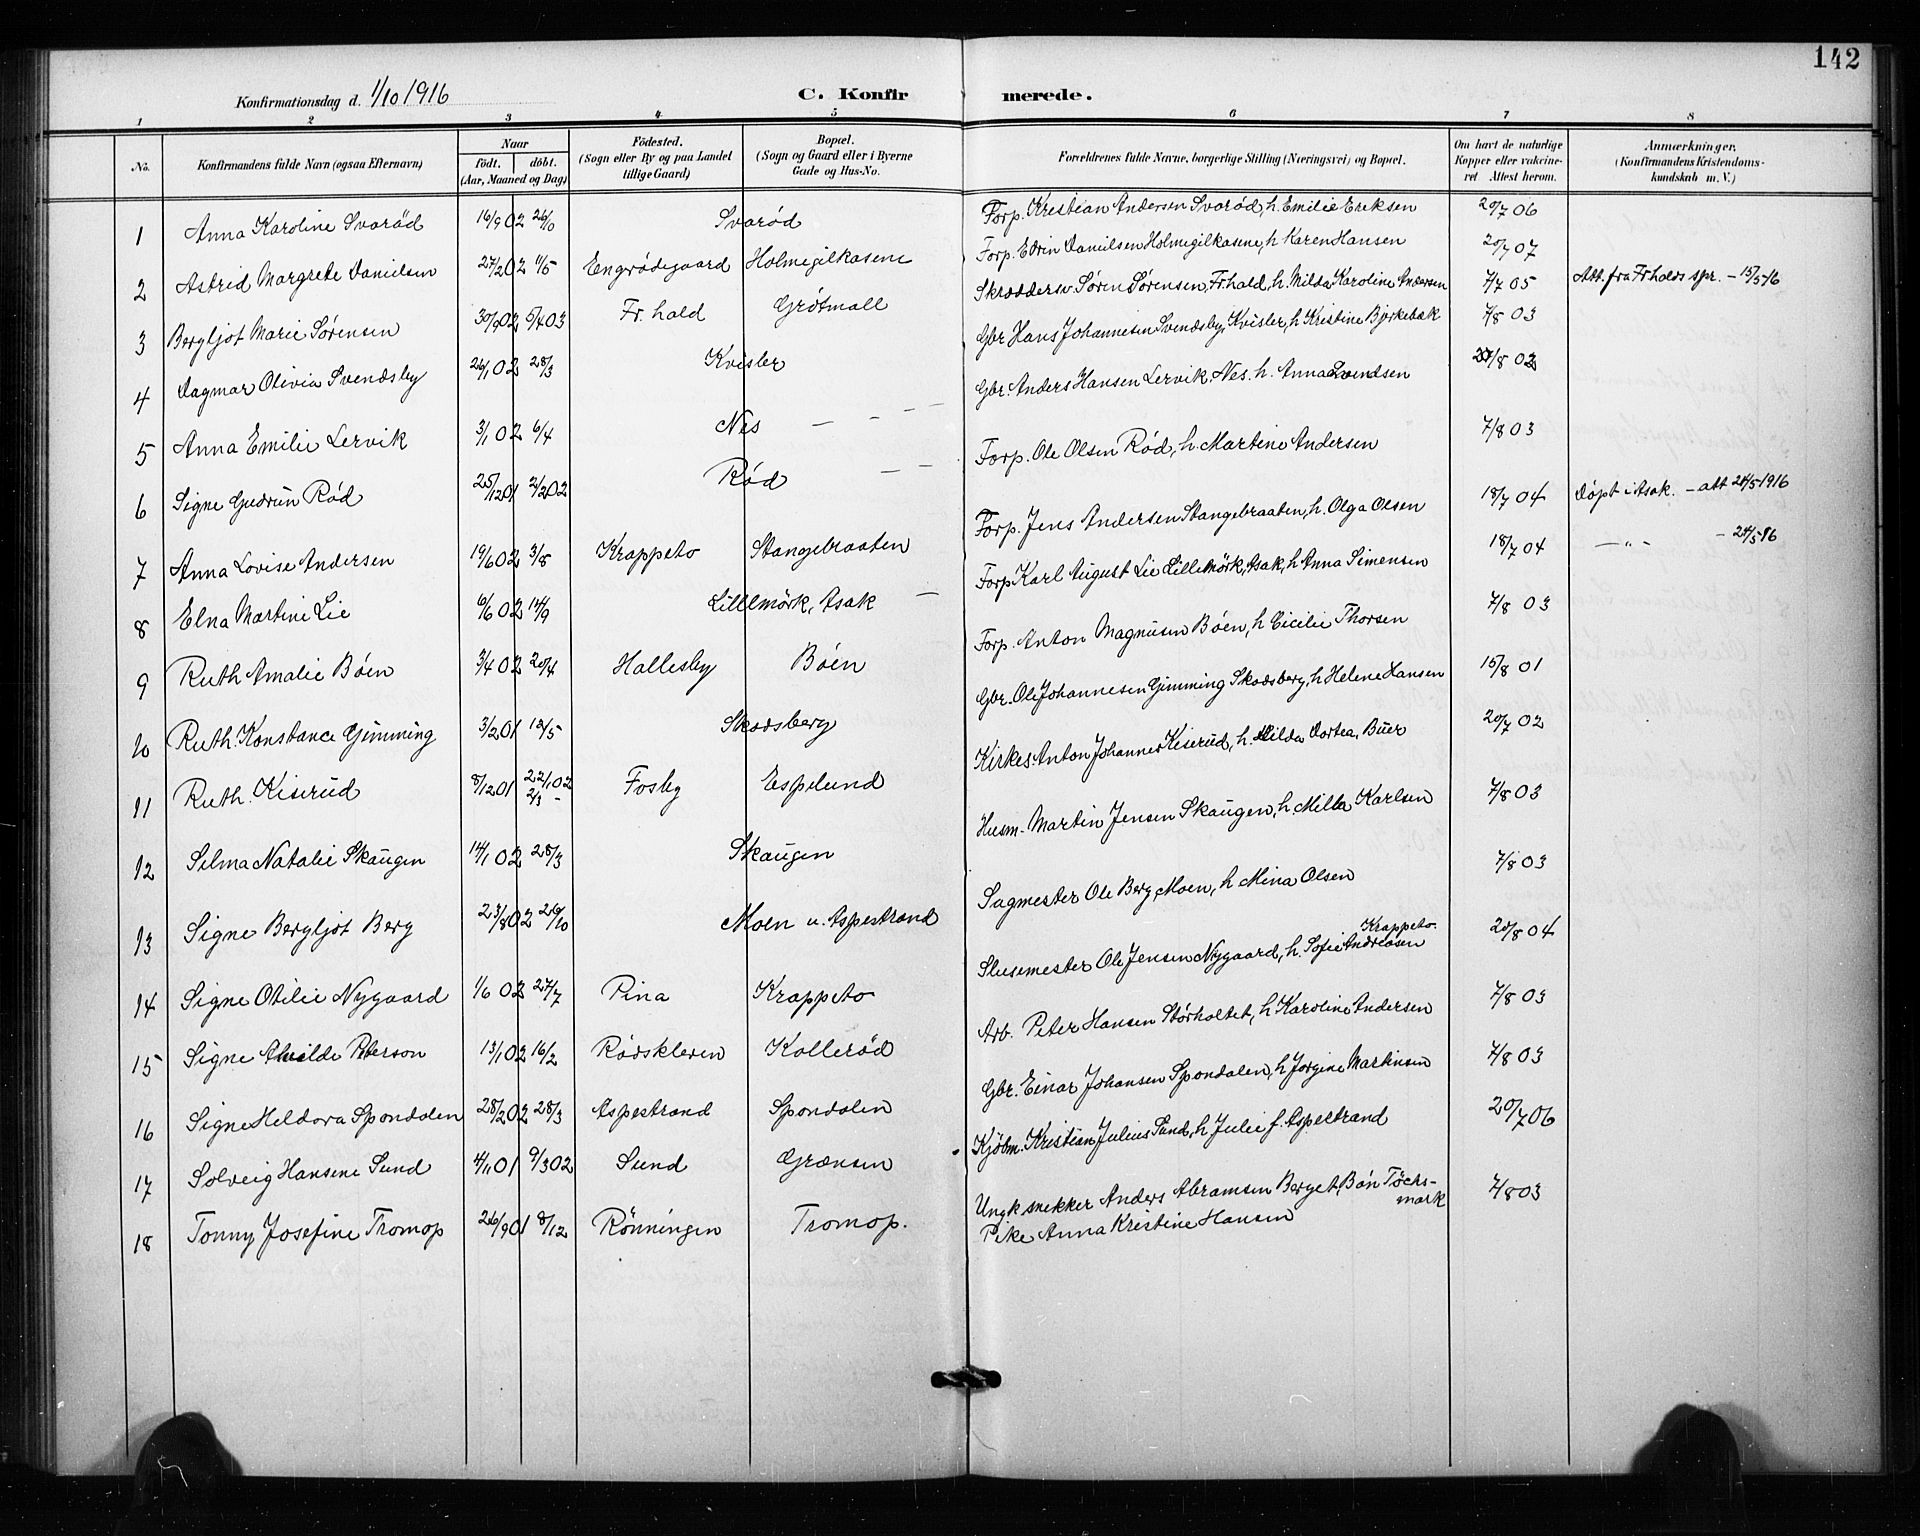 142
Konfirmationsdag d. 1/10 1916 C. Konfirmerede.
1 2 3 4 5 6 7 8
No. Konfirmandens fulde Navn (ogsaa Efternavn) Naar født. døbt. (Aar, Maaned og Dag) Födested. (Sogn eller By og paa Landet tillige Gaard) Bopæl. (Sogn og Gaard eller i Byerne Gade og Hus-No. Forældrenes fulde Navne, borgerlige Stilling (Næringsvei) og Bopæl. Om havt de naturlige Kopper eller vakcineret Attest herom. Anmærkninger, (Konfirmandens Kristendomskundskab m. V.)
1 Anna Karoline Svarød 16/9 02 26/10 Svarød Forp. Kristian Andersen Svarød, h. Emilie Eriksen 20/7 06
2 Astrid Margrete Danielsen 27/2 02 11/5 Engrødegaard Holmegilkasene Forp. Edvin Danielsen Holmegilkasene, h Karen Hansen 20/7 07
3 Bergljot Marie Sørensen 30/9 02 5/4 03 Fr.hald Grøtmall Skræddersv Søren Sørensen, Fr.hald, h. Milda Karoline Andersen 7/7 05 Att. fra Frhalds spr. - 15/5 16
4 Dagmar Olivia Svendsby 26/1 02 28/3 Kvisler Gbr Hans Johannesen Svendsby, Kvisler, h Kristine Bjørkebæk 7/8 03
5 Anna Emilie Lervik 3/1 02 6/4 Nes — - - - Gbr. Anders Hansen Lervik, Nes. h. Anna Svendsen /8 03
6 Signe Gudrun Rød 25/12 01 2/2 02 Rød - - Forp. Ole Olsen Rød, h Martine Andersen 7/8 03
7 Anna Lovise Andersen 19/6 02 3/8 Krappeto Stangebraaten Forp. Jens Andersen Stangebraaten, h. Olga Olsen 18/7 04 Døpt i Asak. - att 24/5 1916
8 Elna Martine Lie 6/6 02 14/9 Lillemörk, Asak - Forp Karl August Lie Lillemörk, Asak, h Anna Simensen 18/7 04 — „ - - 24/5 16
9 Ruth Amalie Bøen 3/4 02 20/4 Hallesby Bøen Forp. Anton Magnusen Bøen, h Cicilie Thorsen 7/8 03
10 Ruth Konstance Gimming 3/2 01 12/5 Skodsberg Gbr. Ole Johannesen Gimming Skodsberg, h Helene Hansen 15/8 01
11 Ruth Kiserud 8/12 01 22/1 02 2/3 - Fosby Espelund Kirkes. Anton Johannes Kiserud, h. Hilda Dortea, Buer 20/7 02
12 Selma Natalie Skaugen 14/1 02 28/3 Skaugen Husm. Martin Jensen Skaugen, h. Milla Karlsen 7/8 03
13 Signe Bergljot Berg 23/8 02 26/10 Moen u. Aspestrand Sagmester Ole Berg, Moen, h Mina Olsen 7/8 03
14 Signe Otilie Nygaard 1/6 02 27/7 Pina Krappeto Slusemester Ole Jensen Nygaard, Krappeto h. Sofie Andreasen 20/8 04
15 Signe Peterson 13/1 02 16/2 Rødskleven Kollerød Arb. Peter Hansen Størholtet, h Karoline Andersen 7/8 03
16 Signe Heldora Spondalen 28/2 02 28/3 Aspestrand Spondalen Gbr. Einar Johansen Spondalen, h Jørgine Martinsen 7/8 03
17 Solveig Hansene Sund 4/11 01 9/3 02 Sund Grænsen Kjøbm. Kristian Julius Sund, h Julie f. Aspestrand 20/7 06
18 Tonny Josefine Tromop 26/9 01 8/12 Rönningen Tromop. Ungk snekker Anders Abramsen Berget, Bøn Töcksmark 7/8 03
Pike Anna Kristine Hansen